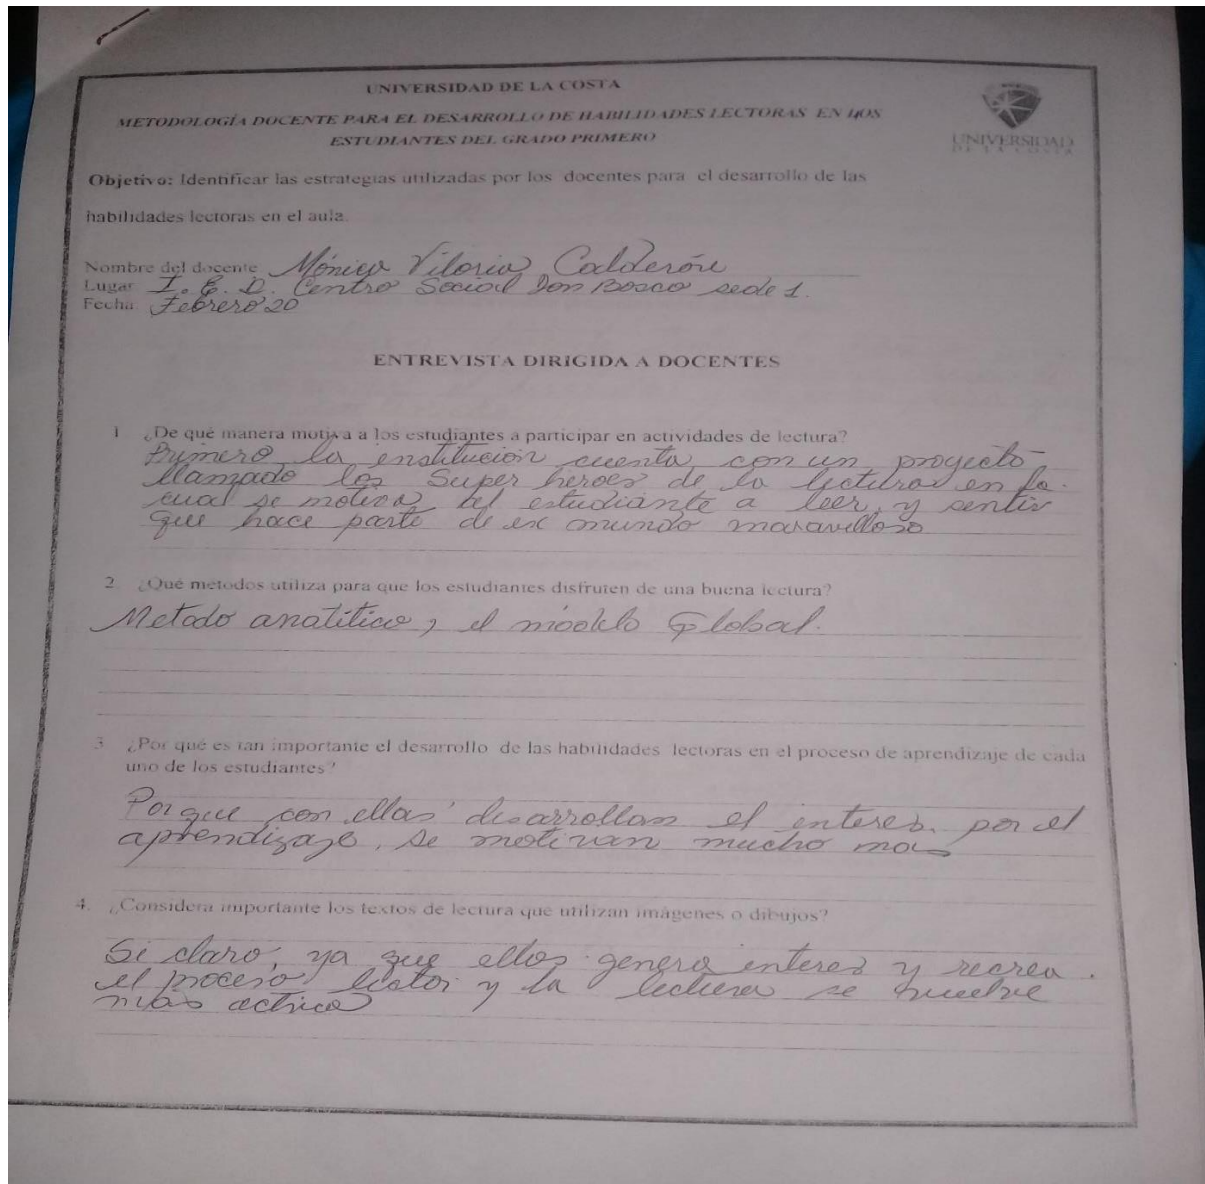 UNIVERSIDAD DE LA COSTA
METODOLOGÍA DOCENTE PARA EL DESARROLLO DE HABILIDADES LECTORAS EN LOS
ESTUDIANTES DEL GRADO PRIMERO
UNIVERSIDAD
DE LA COSTA
Objetivo: Identificar las estrategias utilizadas por los docentes para el desarrollo de las
habilidades lectoras en el aula.
Nombre del docente Mónica Viloria Calderón
Lugar I. E. D. Centro Social Don Bosco sede 1.
Fecha Febrero 20
ENTREVISTA DIRIGIDA A DOCENTES
1 ¿De qué manera motiva a los estudiantes a participar en actividades de lectura?
Primero la institución cuenta con un proyecto
llamado los Super heroes de la lectura en la
cual se motiva al estudiante a leer, y sentir
que hace parte de ex mundo maravilloso
2 ¿Qué métodos utiliza para que los estudiantes disfruten de una buena lectura?
Metodo analitico, el modelo Global.
3 ¿Por qué es tan importante el desarrollo de las habilidades lectoras en el proceso de aprendizaje de cada
uno de los estudiantes?
Porque con ellas desarrollan el interes por el
aprendizaje, se motivan mucho mas
4. ¿Considera importante los textos de lectura que utilizan imágenes o dibujos?
Si claro, ya que ellos genera interes y recrea.
el proceso lector y la lectura se vuelve
mas activa